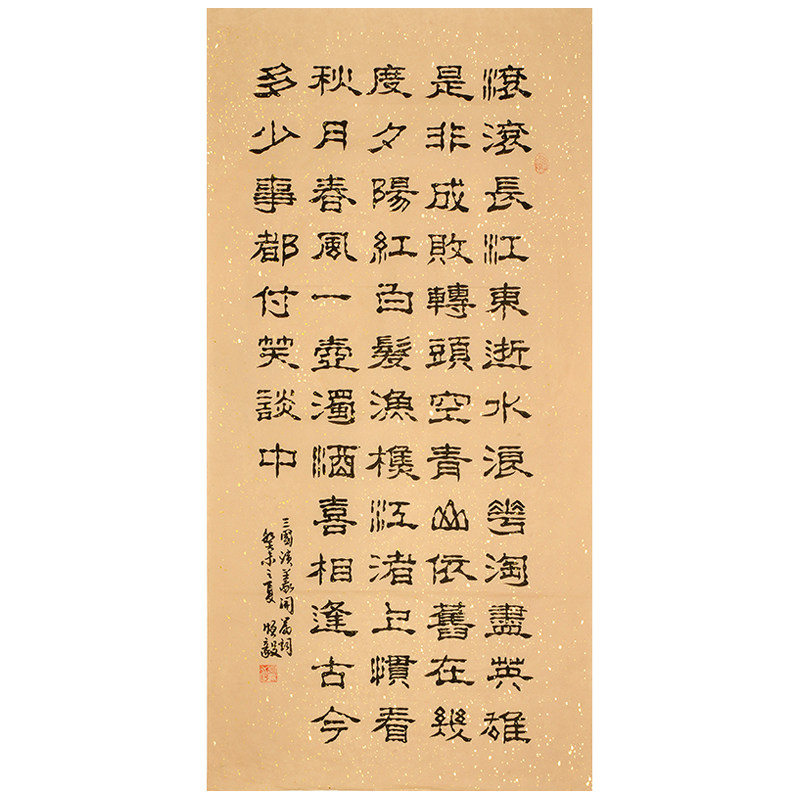 滾滾長江東逝水浪花淘盡英雄
是非成敗轉頭空青山依舊在幾
度夕陽紅白髮漁樵江渚上慣看
秋月春風一壺濁酒喜相逢古今
多少事都付笑談中
三國演義開篇詞
癸未之夏